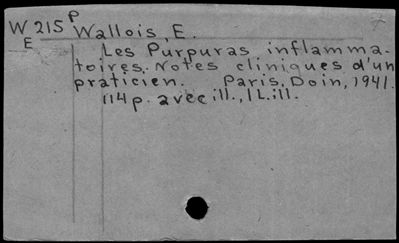 P
W 215 Wallois, E.
E
Les Purpuras inflamma-
toires. Notes cliniques d'un
praticien. Paris, Doin, 1941.
114 p. avec ill., 1 L. ill.